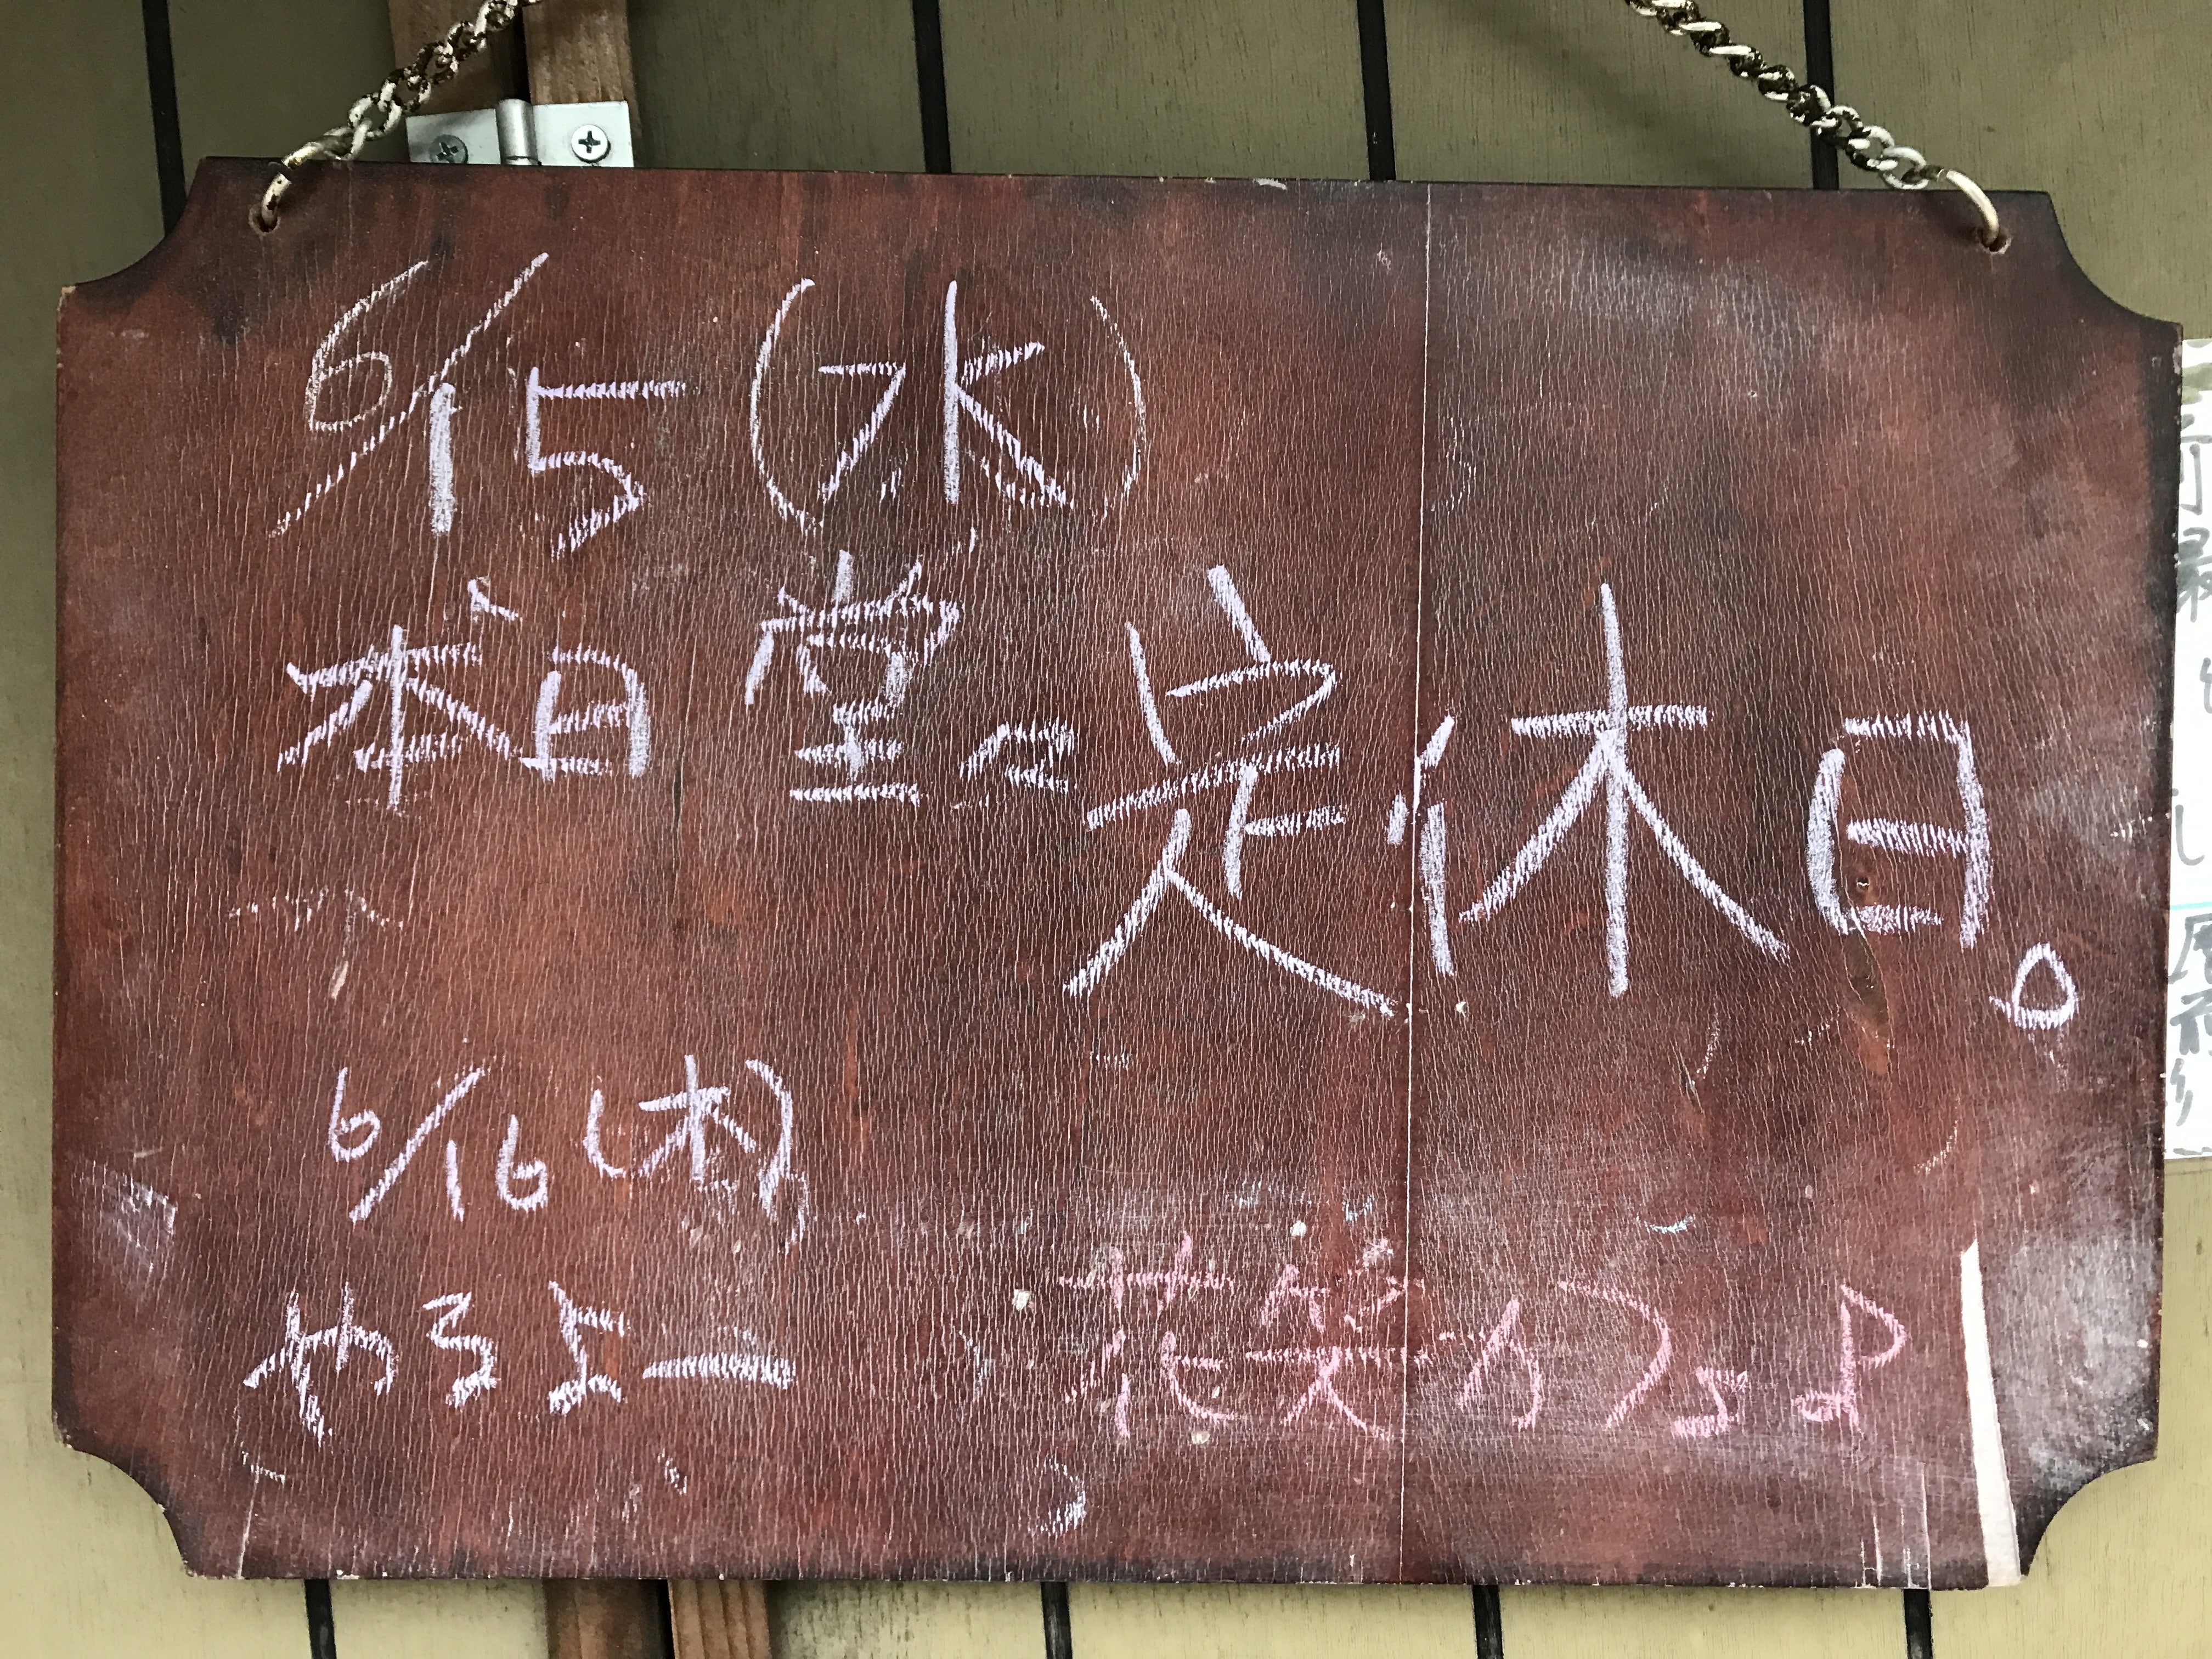 6/15(水)
本日堂々定休日。
6/16(木)
やるよー
花笑カフェ♪